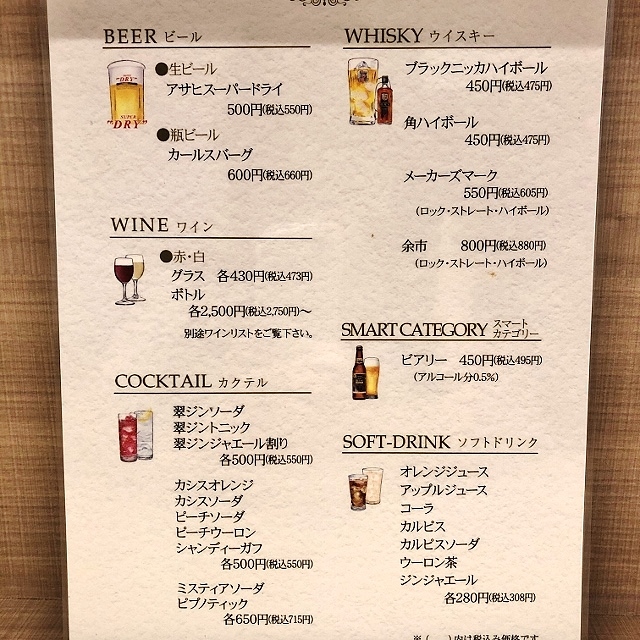 BEER ビール
●生ビール
アサヒスーパードライ
500円(税込550円)
"DRY"
SUPER
"DRY"
●瓶ビール
カールスバーグ
600円(税込660円)
WINE ワイン
●赤・白
グラス 各430円(税込473円)
ボトル
各2,500円(税込2,750円)～
別途ワインリストをご覧下さい。
COCKTAIL カクテル
翠ジンソーダ
翠ジントニック
翠ジンジャエール割り
各500円(税込550円)
カシスオレンジ
カシスソーダ
ピーチソーダ
ピーチウーロン
シャンディーガフ
各500円(税込550円)
ミスティアソーダ
ビブノティック
各650円(税込715円)
WHISKY ウイスキー
ブラックニッカハイボール
450円(税込475円)
角ハイボール
450円(税込475円)
メーカーズマーク
550円(税込605円)
(ロック・ストレート・ハイボール)
余市 800円(税込880円)
(ロック・ストレート・ハイボール)
SMART CATEGORY スマート
カテゴリー
ビアリー 450円(税込495円)
(アルコール分0.5%)
SOFT-DRINK ソフトドリンク
オレンジジュース
アップルジュース
コーラ
カルピス
カルピスソーダ
ウーロン茶
ジンジャエール
各280円(税込308円)
※( )内は税込み価格です